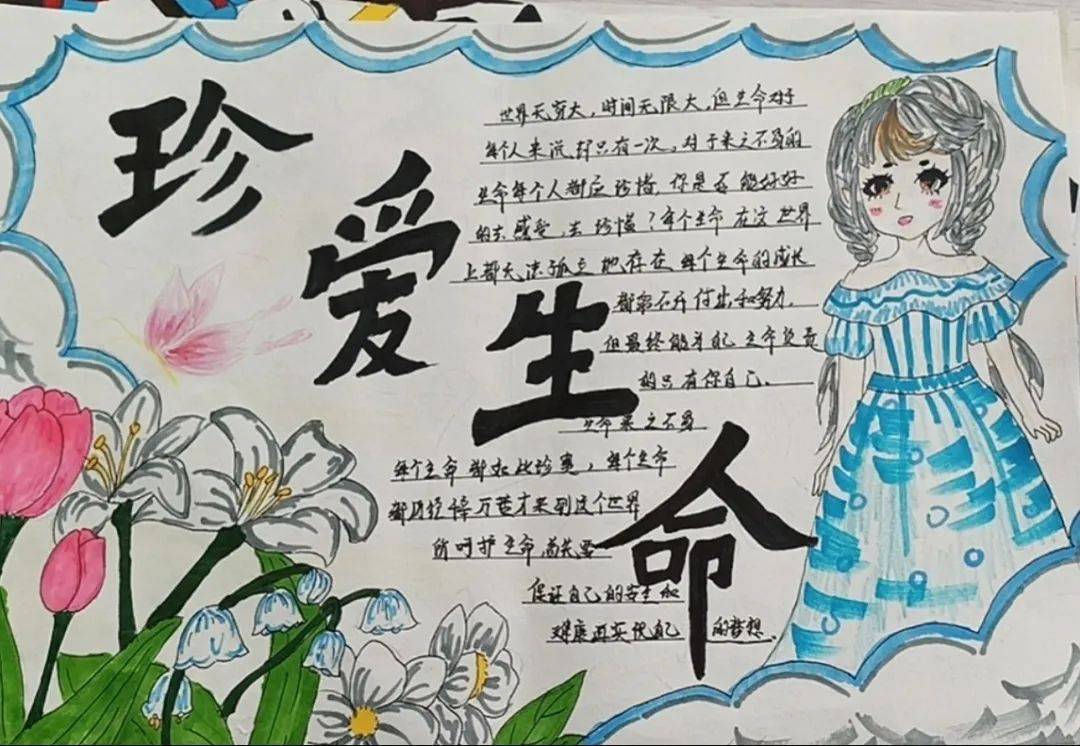 珍爱生命
世界无穷大，时间无限大，但生命对于
每个人来说，却只有一次，对于来之不易的
生命每个人都应珍惜，你是否能好好
的去感受，去珍惜？每个生命在这世界
上都无法孤立地存在，每个生命的成长
都离不开付出和努力，
但最终能为自己生命负责
的只有你自己。
生命来之不易
每个生命都如此珍贵，每个生命
都历经千辛万苦才来到这个世界
所呵护生命，首先要
保证自己的安全和
健康再实现自己的梦想。